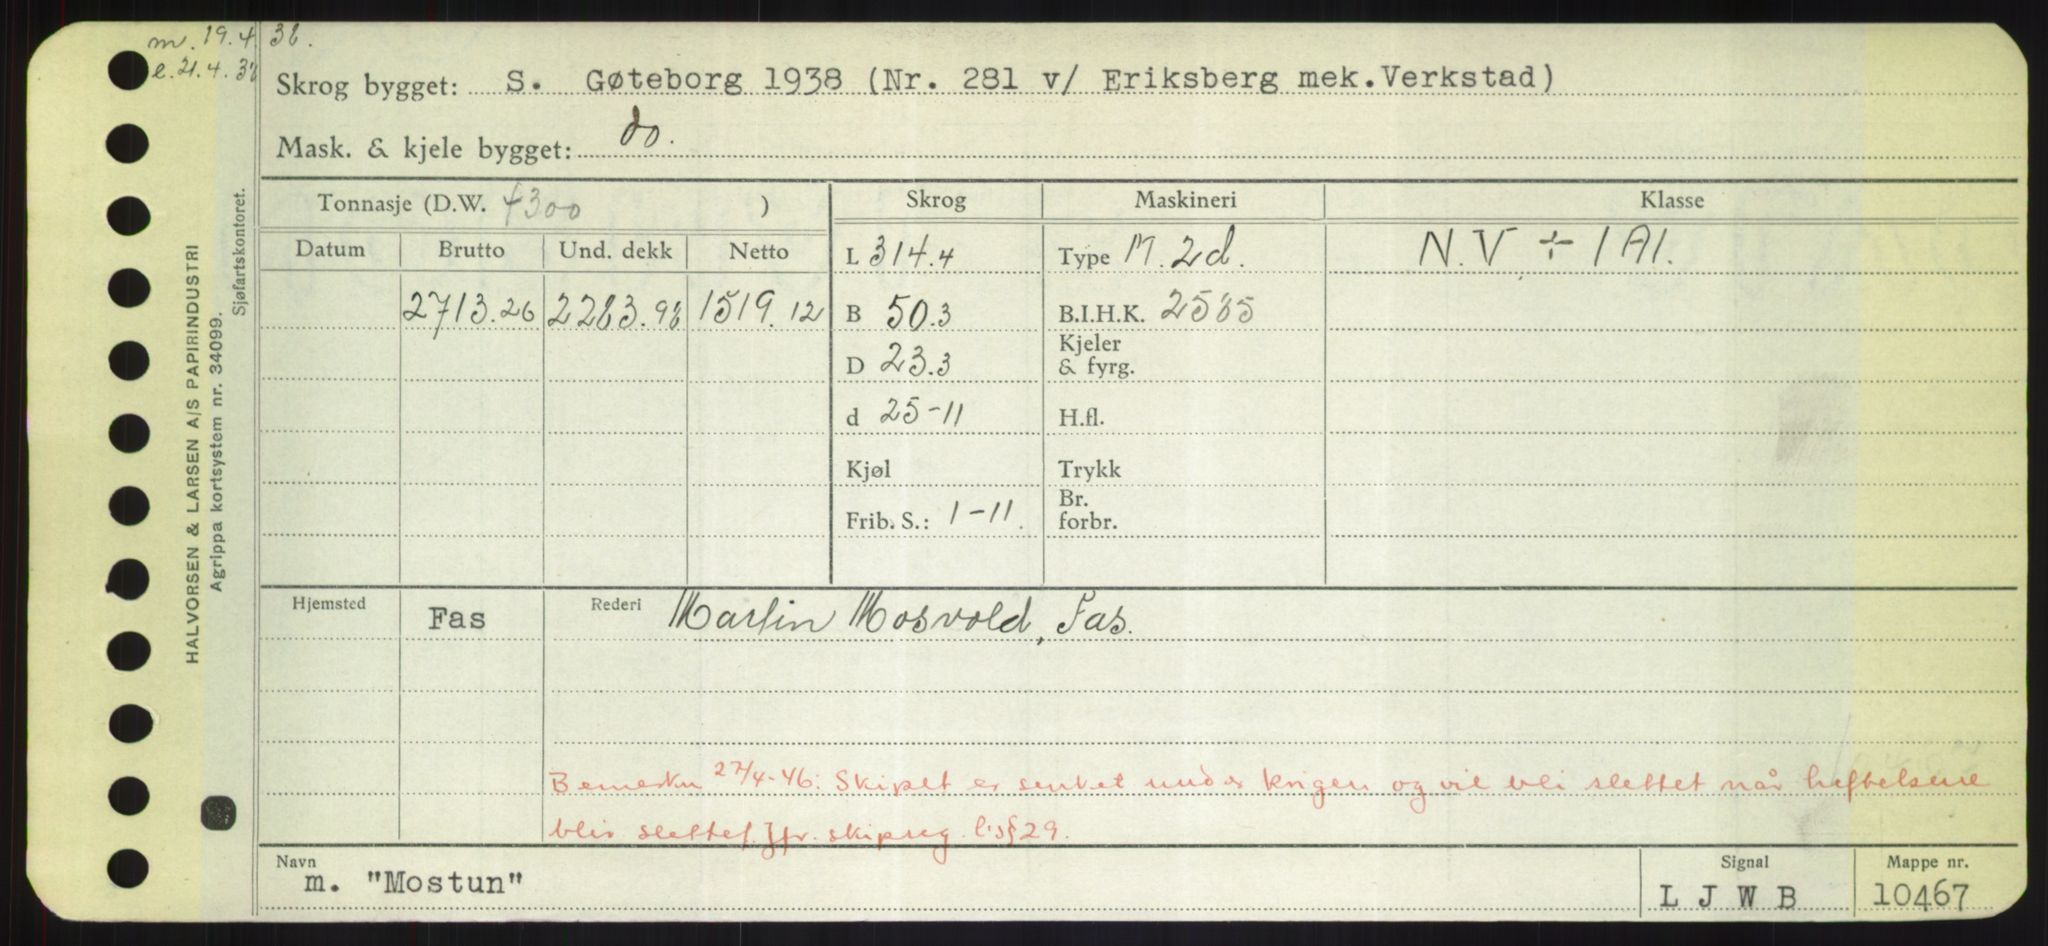 m. 19.4.38.
e. 21.4.38
Skrog bygget: S. Gøteborg 1938 (Nr. 281 v/ Eriksberg mek.Verkstad)
Mask. & kjele bygget: do.
Tonnasje (D.W. 4300 )
Skrog Maskineri Klasse
Datum Brutto Und. dekk Netto
L 314.4 Type M. 2d. N.V. ÷ 1A1.
2713.26 2283.98 1519.12 B 50.3 B.I.H.K. 2585
D 23.3 Kjeler & fyrg.
d 25-11 H.fl.
Kjøl Trykk
Frib. S.: 1-11. Br. forbr.
Hjemsted Fas Rederi Martin Mosvold, Fas.
Bemerkn 27/4-46: Skipet er senket under krigen og vil bli slettet når heftelsene
blir slettet. Jfr. skipsreg. l's § 29.
Navn m. "Mostun" Signal L J W B Mappe nr. 10467
HALVORSEN & LARSEN A/S PAPIRINDUSTRI
Agrippa kortsystem nr. 34099.
Sjøfartskontoret.